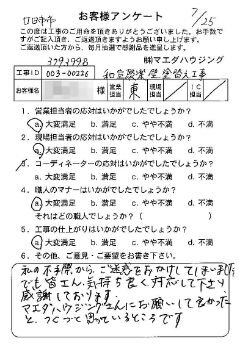 お客様アンケート
7/25
この度は工事のご用命を頂きありがとうございました。お手数で
すがご記入頂き、ご返送頂きますようお願い申し上げます。
ご返送頂いた方から、毎月抽選で感謝品を進呈します。
㈱マエダハウジング
工事ID 003-00226
お客様名 様 営業担当 東 現場担当 IC担当
1. 営業担当者の応対はいかがでしたでしょうか?
a. 大変満足 b. 満足 c. やや不満 d. 不満
2. 現場担当者の応対はいかがでしたでしょうか?
a. 大変満足 b. 満足 c. やや不満 d. 不満
3. コーディネーターの応対はいかがでしたでしょうか?
a. 大変満足 b. 満足 c. やや不満 d. 不満
4. 職人のマナーはいかがでしたでしょうか?
a. 大変満足 b. 満足 c. やや不満 d. 不満
それはどの職人でしょうか?( )
5. 工事の仕上がりはいかがでしたでしょうか?
a. 大変満足 b. 満足 c. やや不満 d. 不満
6. その他、ご意見・ご要望をお書き下さい。
私の不手際からご迷惑をおかけしてしまいました
でも皆さん、気持ち良く対応して下さり
感謝しております。
マエダハウジングさんにお願いして良かった
と、つくづく思っているところです